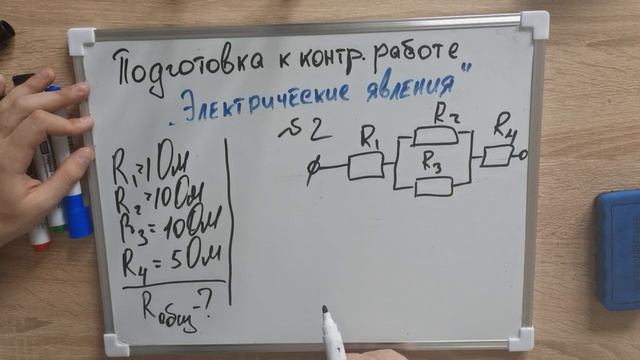 Подготовка к контр. работе
„Электрические явления"
№2
R₁=1 Ом
R₂=10 Ом
R₃=10 Ом
R₄=5 Ом
Rобщ-?
R₁
R₂
R₃
R₄